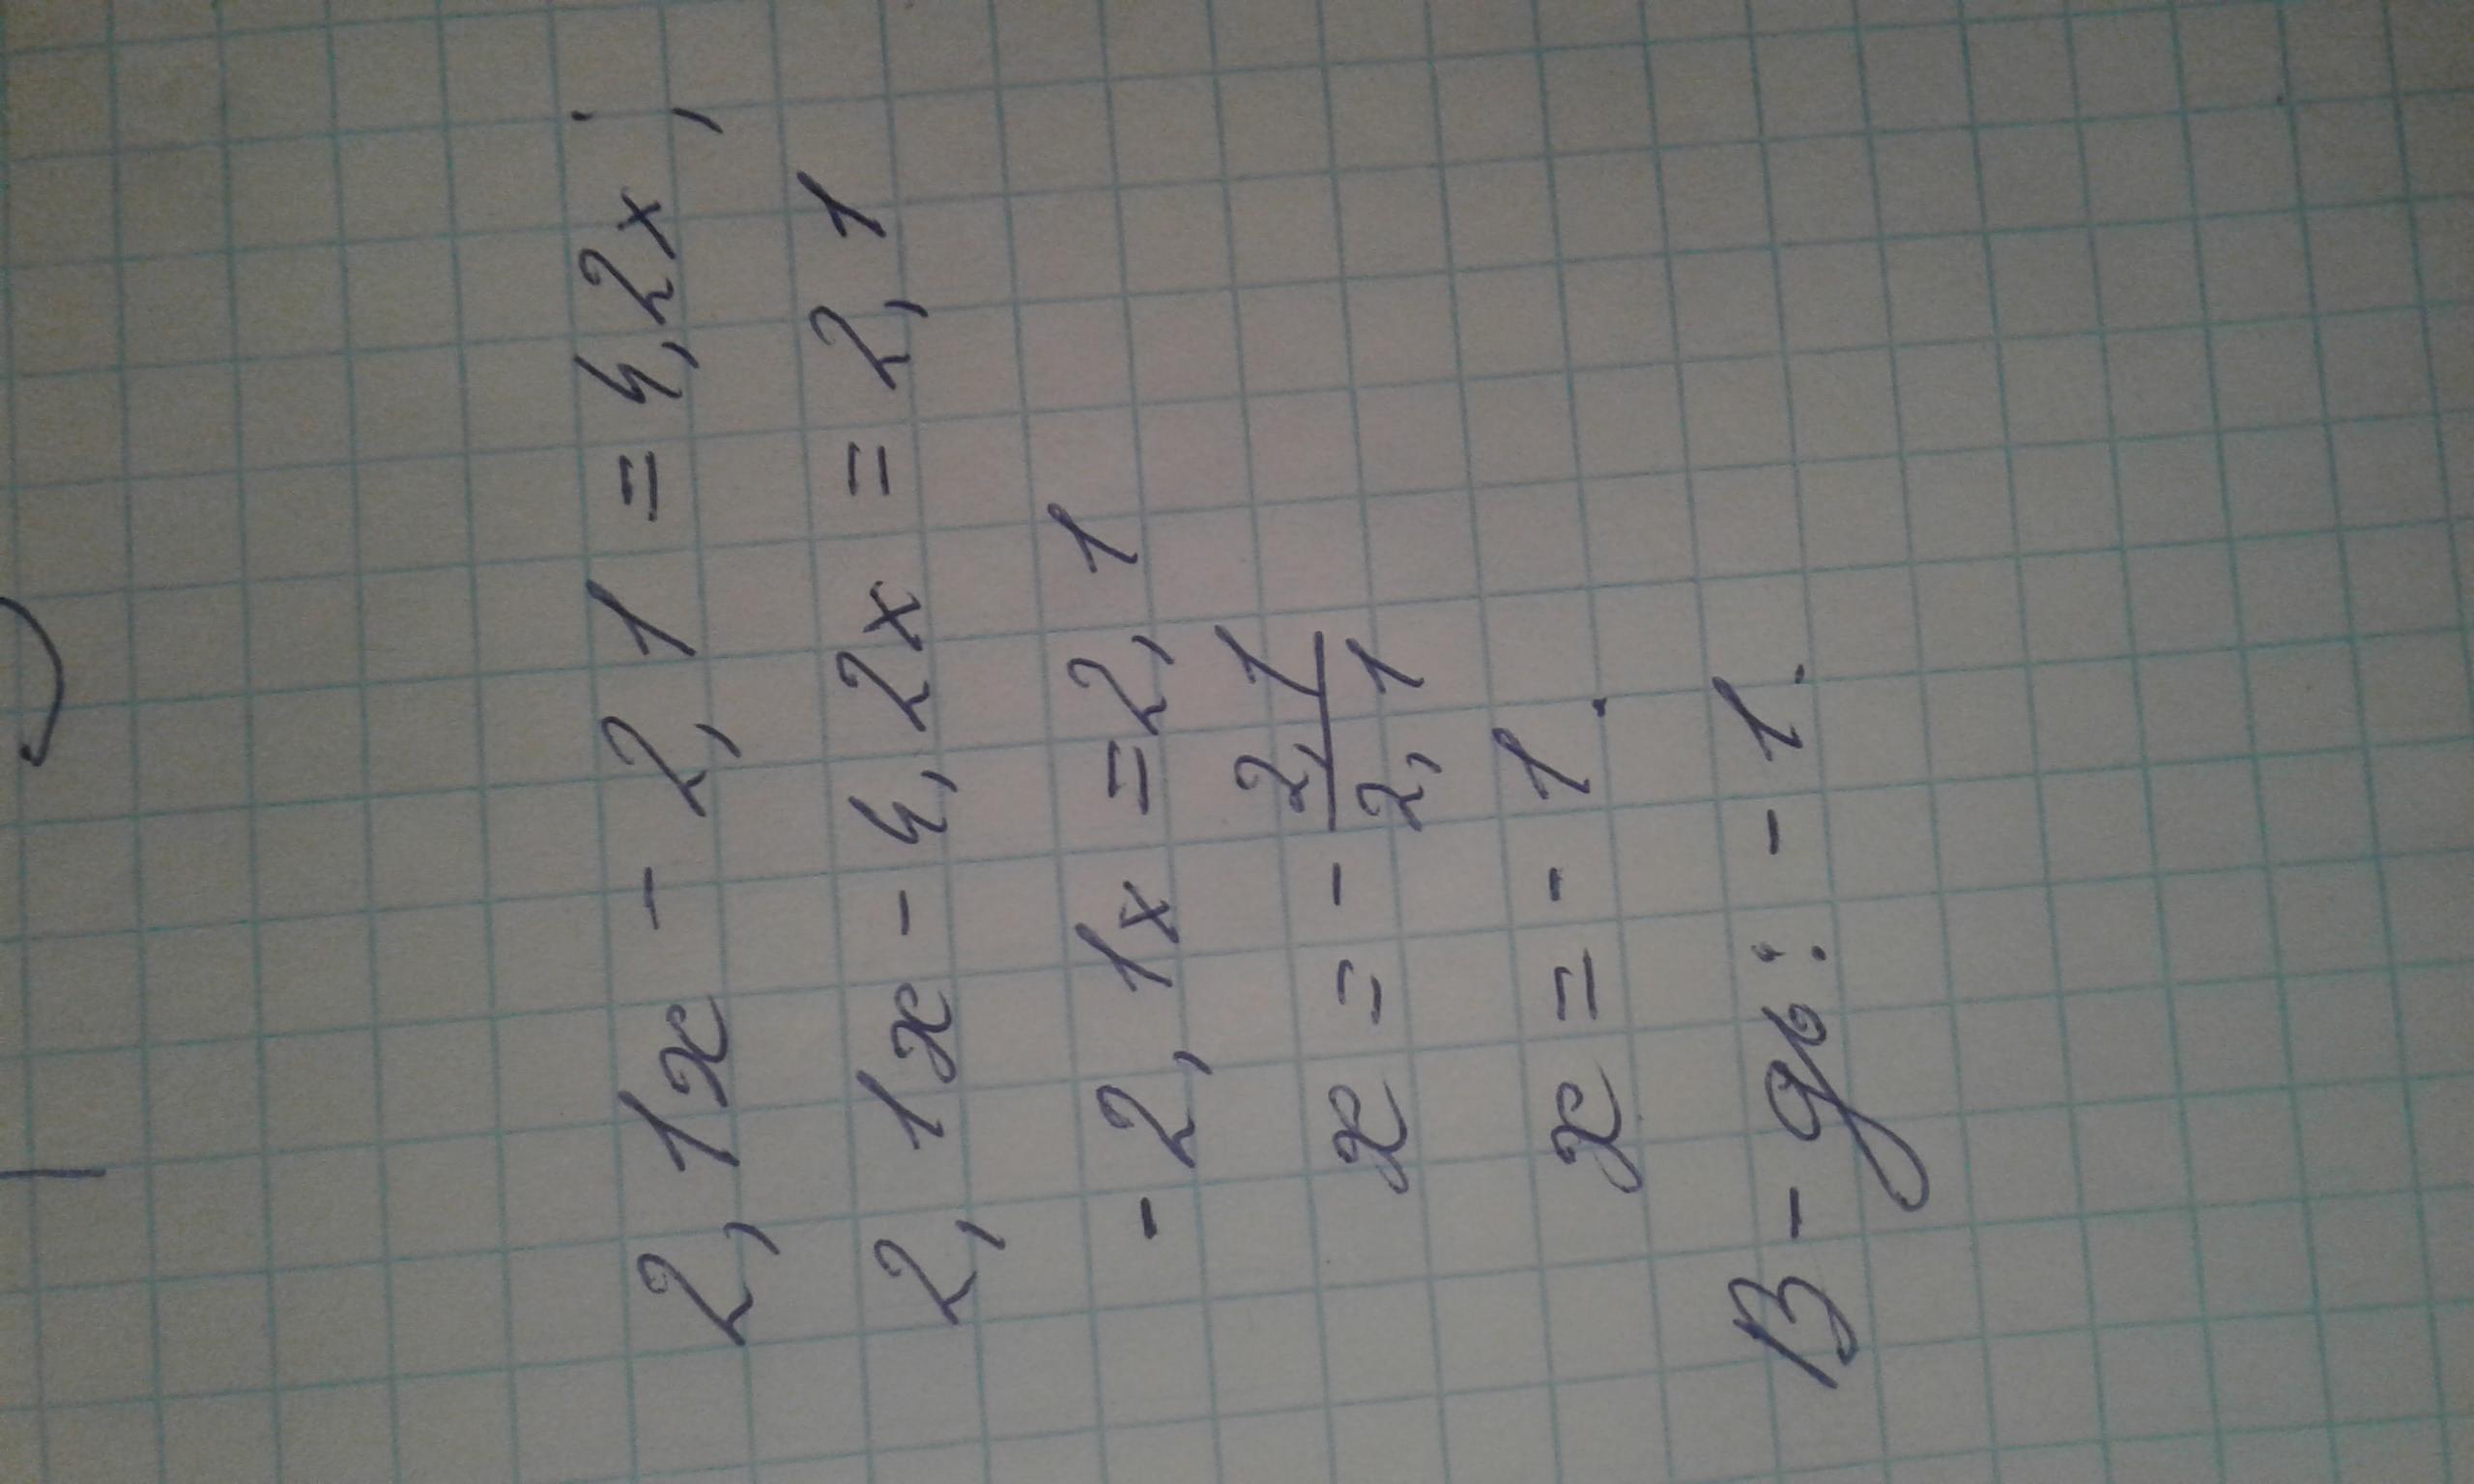 2,1x - 2,1 = 4,2x;
2,1x - 4,2x = 2,1
-2,1x = 2,1
x = - 2,1/2,1
x = - 1.
В-дь: - 1.